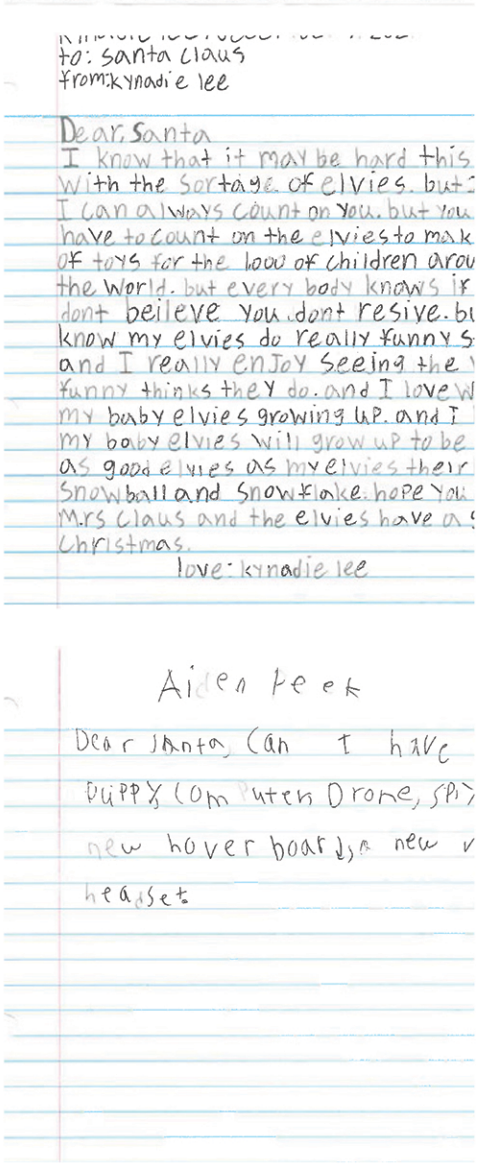 to: santa claus
from:kynadie lee
Dear, Santa
I know that it may be hard this
with the sortage. of elvies. but
I can always count on you. but you
have to count on the elvies to mak
of toys for the of children arou
the world. but every body knows if
dont beileve you dont resive. bu
know my elvies do really funny s
and I really enjoy seeing the
funny thinks they do. and I love w
my baby elvies growing up. and I
my baby elvies will grow up to be
as good elvies as my elvies their
snowball and snowflake. hope you
Mrs Claus and the elvies have a
christmas.
love: kynadie lee
Aiden Peek
Dear Santa, Can I have
puppy computer Drone, spy
new hover board, a new v
headset